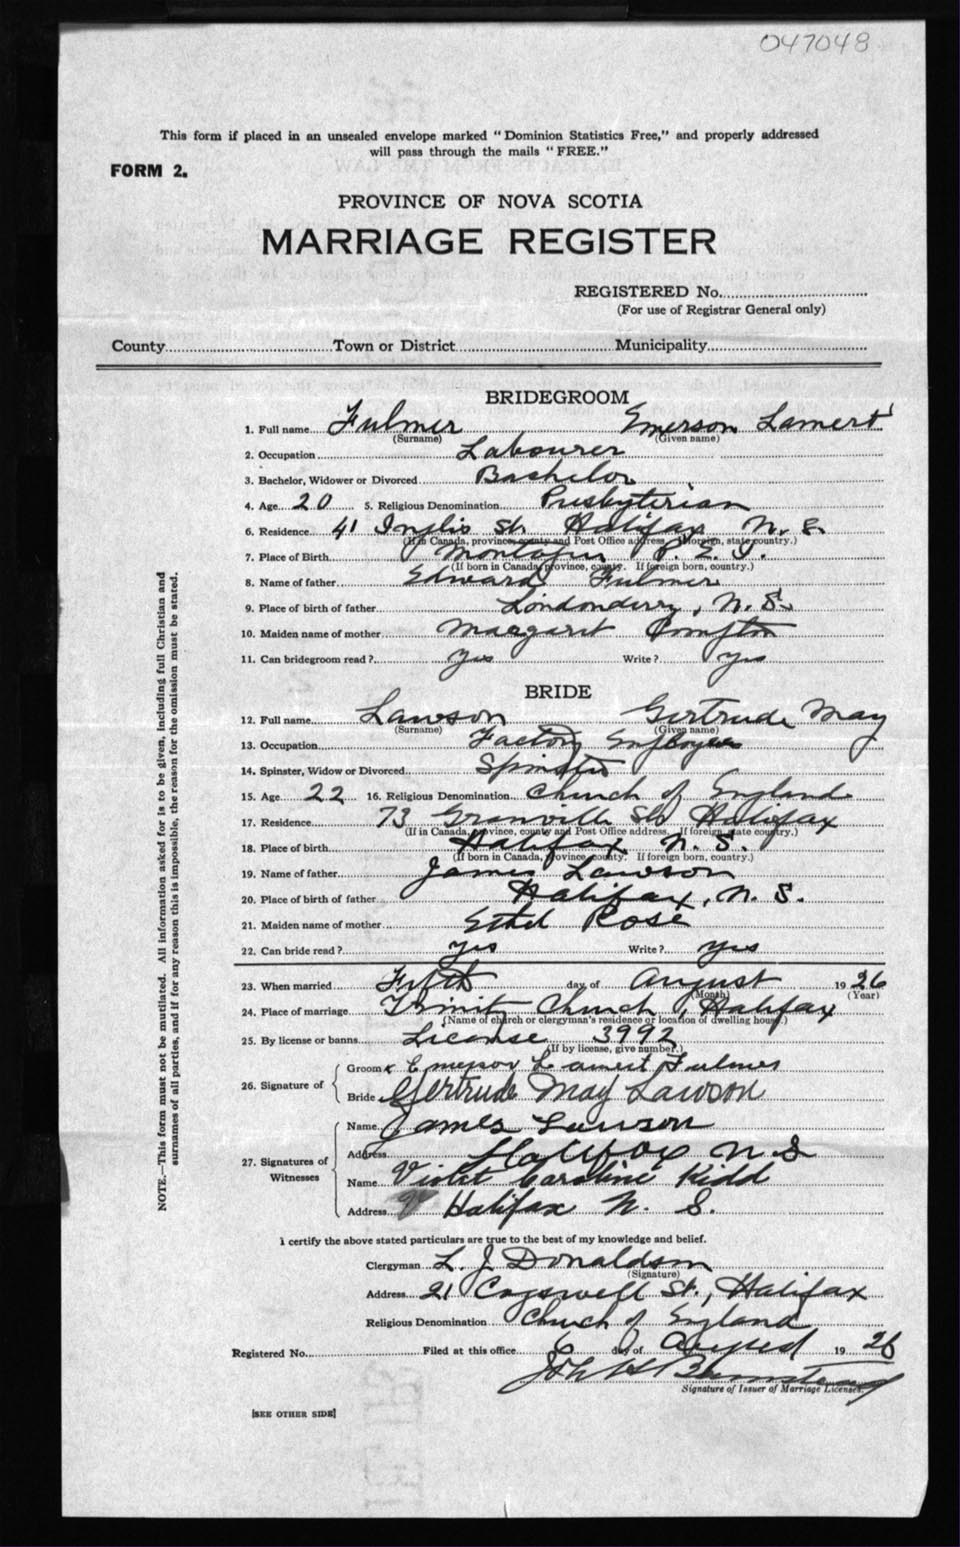 047048
This form if placed in an unsealed envelope marked "Dominion Statistics Free," and properly addressed
will pass through the mails "FREE."
FORM 2.
PROVINCE OF NOVA SCOTIA
MARRIAGE REGISTER
REGISTERED No.
(For use of Registrar General only)
County Town or District Municipality
BRIDEGROOM
1. Full name Fulmer Emerson Lamert
(Surname) (Given name)
2. Occupation Labourer
3. Bachelor, Widower or Divorced Bachelor
4. Age 20 5. Religious Denomination Presbyterian
6. Residence 41 Inglis St. Halifax N. S.
(If in Canada, province, county and Post Office address. If foreign, state country.)
7. Place of Birth Montague P. E. I.
(If born in Canada, province, county. If foreign born, country.)
8. Name of father Edward Fulmer
9. Place of birth of father Londonderry, N. S.
10. Maiden name of mother Margaret Compton
11. Can bridegroom read? yes Write? yes
BRIDE
12. Full name Lawson Gertrude May
(Surname) (Given name)
13. Occupation Factory Employee
14. Spinster, Widow or Divorced Spinster
15. Age 22 16. Religious Denomination Church of England
17. Residence 73 Granville St. Halifax
(If in Canada, province, county and Post Office address. If foreign, state country.)
18. Place of birth Halifax N. S.
(If born in Canada, province, county. If foreign born, country.)
19. Name of father James Lawson
20. Place of birth of father Halifax, N. S.
21. Maiden name of mother Ethel Rose
22. Can bride read? yes Write? yes
23. When married Fifth day of August 1926
(Month) (Year)
24. Place of marriage Trinity Church, Halifax
(Name of church or clergyman's residence or location of dwelling house.)
25. By license or banns License 3992
(If by license, give number.)
26. Signature of
Groom x Emerson Lamert Fulmer
Bride Gertrude May Lawson
27. Signatures of Witnesses
Name James Lawson
Address Halifax N S
Name Violet Caroline Kidd
Address Halifax N. S.
I certify the above stated particulars are true to the best of my knowledge and belief.
Clergyman L. J. Donaldson
(Signature)
Address 21 Cogswell St., Halifax
Religious Denomination Church of England
Registered No. Filed at this office 6 day of August 1926
Signature of Issuer of Marriage Licenses.
[SEE OTHER SIDE]
NOTE.—This form must not be mutilated. All information asked for is to be given, including full Christian and
surnames of all parties, and if for any reason this is impossible, the reason for the omission must be stated.